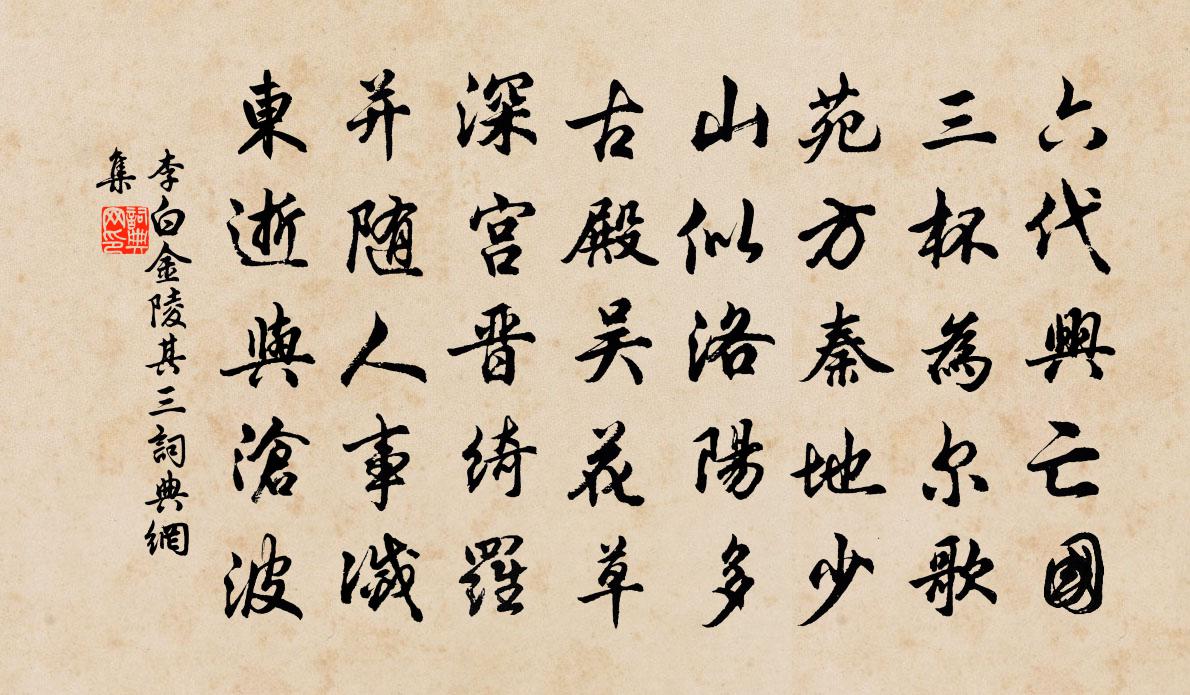 六代興亡國
三杯為尔歌
苑方秦地少
山似洛陽多
古殿吴花草
深宫晋綺羅
并随人事滅
東逝與滄波
李白金陵其三詞典網
集
詞典網印